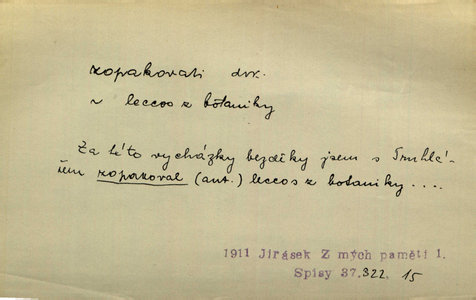 zopakovati dok.
~ leccos z botaniky
Za této vycházky bezděky jsem s Truhlá-
řem zopakoval (aut.) leccos z botaniky ....
1911 Jirásek Z mých pamětí 1.
Spisy 37.322. 15